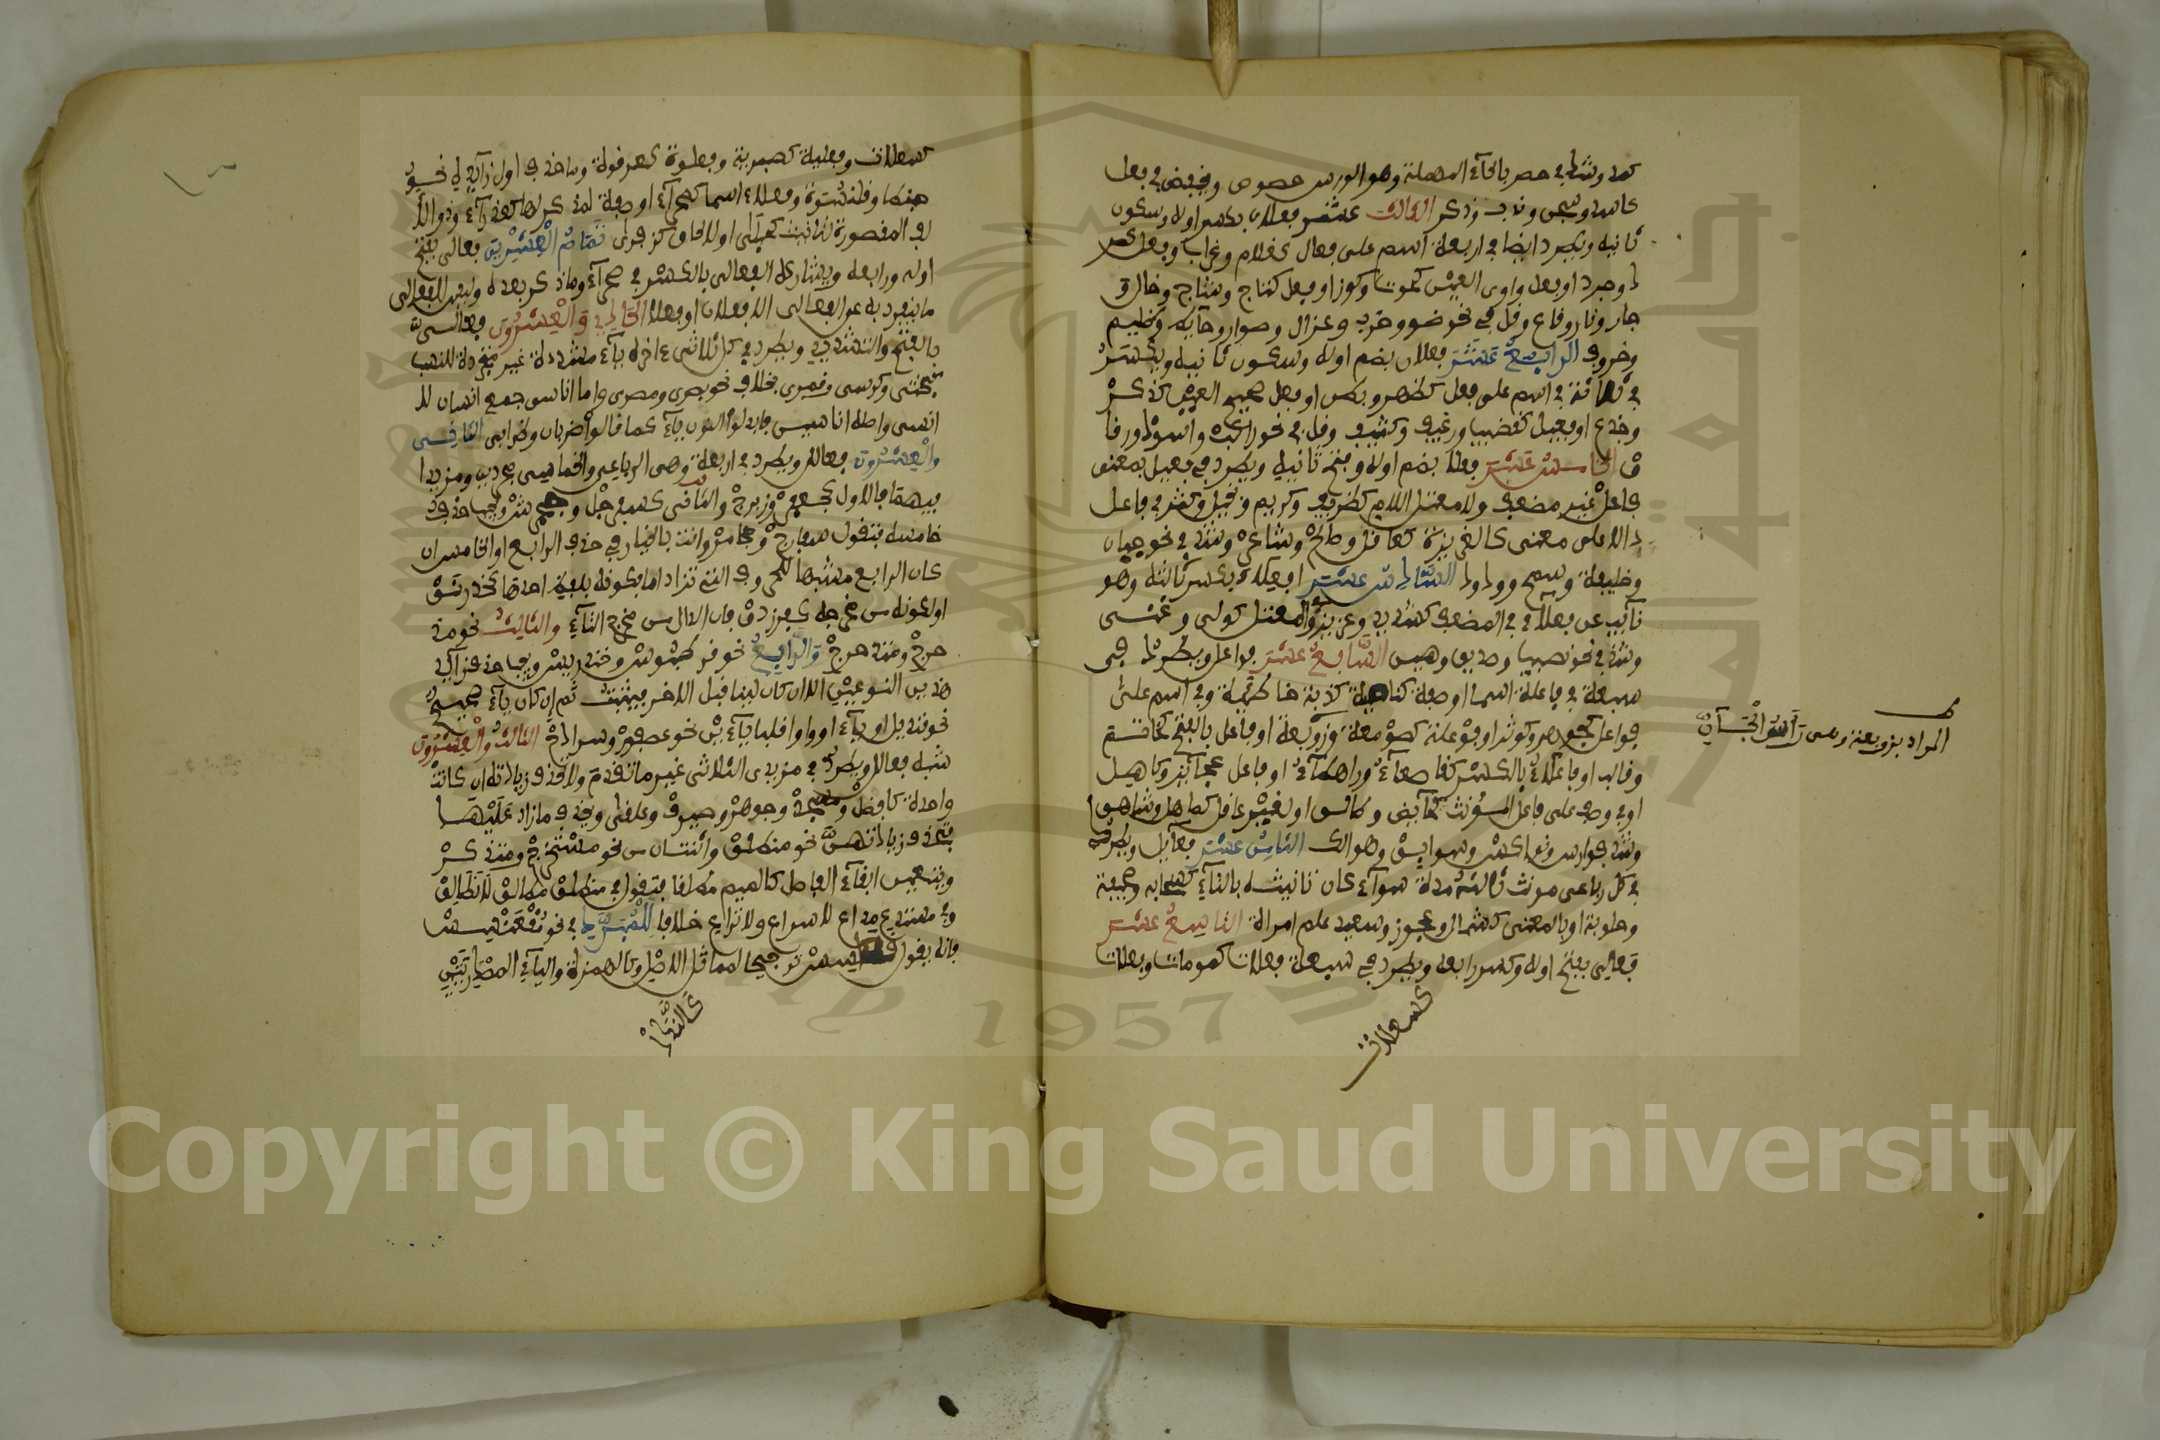 كما وشذ في حص بالحاء المهملة وهو الورس حصوص ويحفظ في فعل
كاسد وشجن وندب وذكر الثالث عشر فعلان بكسر اوله وسكون
ثانيه ويطرد ايضا في اربعة اسم على فعال كغلام وغراب وفعل كصر
د وجرذ او فعل واوي العين كحوت وكوز او فعل كتاج وساج وخال و
جار ونار وقاع وقل في نحو صنو وخرب وغزال وصوار وحايط وظليم
وخروف الرابع عشر فعلان بضم اوله وسكون ثانيه ويكثر
في ثلاثة في اسم على فعل كظهر وبطن او فعل صحيح العين كذكر
وجذع او فعيل كقضيب ورغيف وكثيب وقل في نحو راكب واسود وزقا
ق الخامس عشر فعلاء بضم اوله وفتح ثانيه ويطرد في فعيل بمعنى
فاعل غير مضعف ولا معتل اللام كظريف وكريم وبخيل وكثر في فاعل
دالا على معنى كالغريزة كعاقل وصالح وشاعر وشذ في نحو جبان
وخليفة وسمح وودود السادس عشر افعلاء بكسر ثالثه وهو
نائب عن فعلاء في المضعف كشديد وعزيز والمعتل كولي وغني
وشذ في نحو نصيب وصديق وهين السابع عشر فواعل ويطرد في
سبعة في فاعلة اسما او صفة كناصية كاذبة خاطئة وفي اسم على
فوعل كجوهر وكوثر او فوعلة كصومعة وزوبعة او فاعل بالفتح كخاتم
وقالب او فاعلاء بالكسر كقاصعاء وراهطاء او فاعل كجائز وكاهل
او في وصف على فاعل لمؤنث كحائض وطالق او لغير عاقل كصاهل وشاهق
وشذ فوارس ونواكس وسوابق وهوالك الثامن عشر فعائل ويطرد
في كل رباعي مؤنث ثالثه مدة سواء كان تانيثه بالتاء كسحابة وصحيفة
وحلوبة او بالمعنى كشمال وعجوز وسعيد علم امراة التاسع عشر
فعالي بفتح اوله وكسر رابعه ويطرد في سبعة فعلات كموماة وفعلات
كسعلات
المراد بزوبعة رئيس من رؤساء الجن
كسعلات وفعلية كهبرية وفعلوة كعرقوة وما حذف اول زائديه من نحو
حبنطا وقلنسوة وفعلاء اسما كصحراء او صفة لا مذكر لها كعذراء وذو الا
لف المقصورة لتانيث كحبلى او لالحاق كذفرى تمام العشرين فعالى بفتح
اوله ورابعه ويشاركه الفعالي بالكسر في صحراء وما ذكر بعده وليس للفعالى
ما ينفرد به عن الفعالي الا فعلان او فعلا الحادي والعشرون فعالي
بالفتح والتشديد ويطرد في كل ثلاثي ءاخره ياء مشددة غير متجددة للنسب
كبختي وكرسي وقمري بخلاف نحو بصري ومصري واما اناسي جمع انسان لا
انسي واصله اناسين فابدلوا النون ياء كما قالوا ضربان وظرابي الثاني
والعشرون فعالل ويطرد في اربعة وهي الرباعي والخماسي مجردين ومزيدا
فيهما فالاول كجعفر وزبرج والثاني كسفرجل وجحمرش ويجب حذف
خامسه فتقول سفارج وجحامر وانت بالخيار في حذف الرابع او الخامس ان
كان الرابع مشبها للحروف التي تزاد اما بكونه بلفظ احدها كخدرنق
او بكونه من مخرجه كفرزدق فان الدال من مخرج التاء والثالث نحو مد
حرج ومتدحرج والرابع نحو قرطبوس وخندريس ويجب حذف زائد
هذين النوعين الا ان كان لينا قبل الاخر فيثبت ثم ان كان ياء صحيح
نحو قنديل او ياء او واو قلبا ياءين نحو عصفور وسرداح الثالث والعشرون
شبه فعالل ويطرد في مزيد الثلاثي غير ما تقدم ولا تحذف زيادته ان كانت
واحدة كافضل ومسجد وجوهر وصيرف وعلقى ويحذف ما زاد عليها
فتحذف زيادة من نحو منطلق واثنتان من نحو مستخرج ومتذكر
ويتعين ابقاء الفاضل كالميم مطلقا فتقول في منطلق مطالق لا نطالق
وفي مستدع مداع لا سداع ولا تداع خلافا للمبرد في نحو مقعنسس
فانه يقول قعاسس ترجيحا لمماثل الاصل وكالهمزة والياء المصدرتين
كالندد